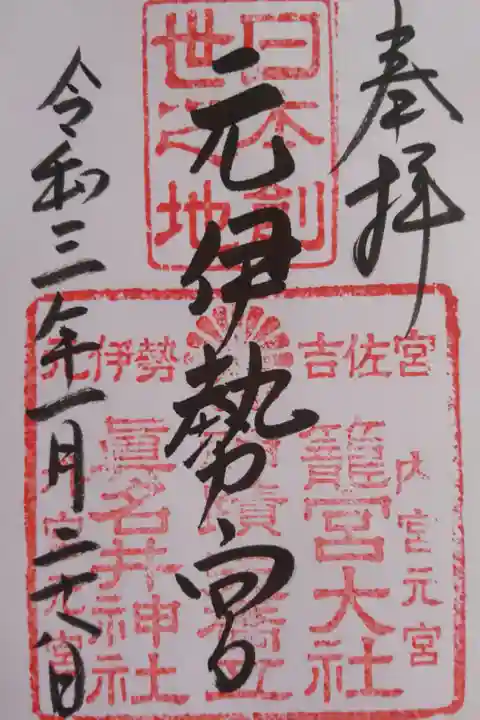 奉拝
日本創
世之地
元伊勢宮
吉佐宮
元伊勢
内宮元宮
籠宮大社
眞名井神社
令和三年一月二十八日